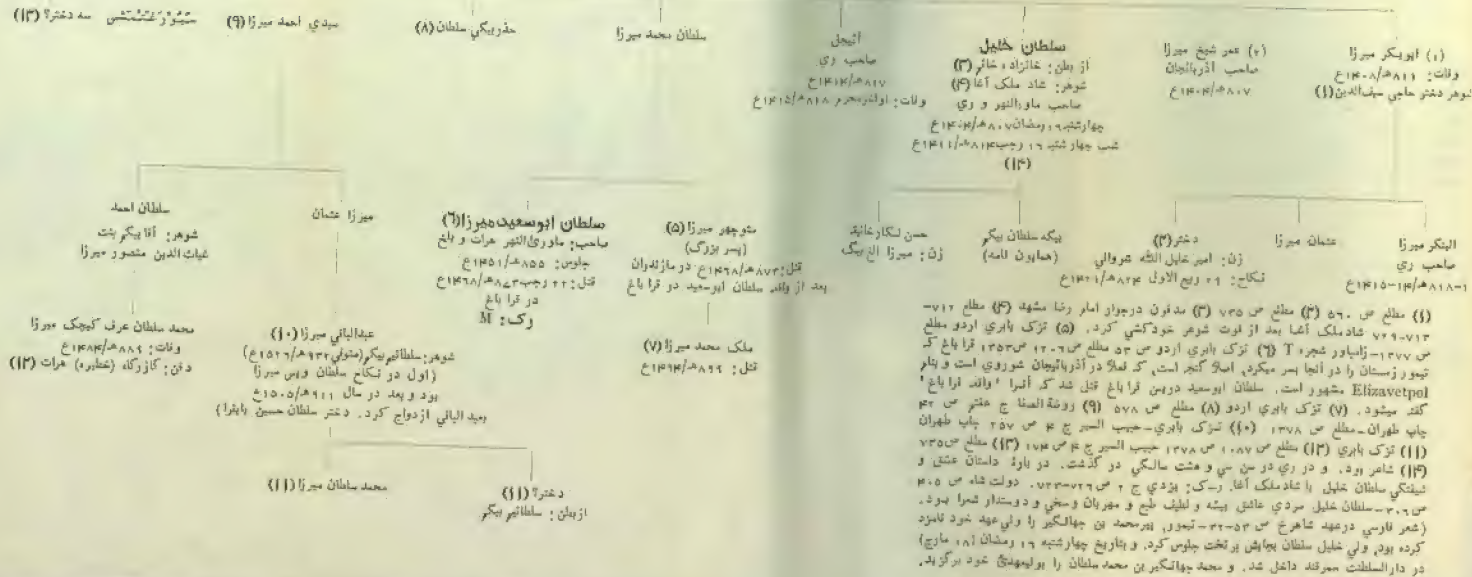 (۱) ابوبکر میرزا
وفات: ۸۱۱هـ/۱۴۰۸ع
شوهر دختر حاجی سیف‌الدین (۱)
(۲) عمر شیخ میرزا
صاحب آذربائجان
۸۰۷هـ/۱۴۰۴ع
سلطان خلیل
از بطن: خانزاده خانم (۳)
شوهر: شاد ملک آغا (۴)
صاحب ماورالنهر و ری
چهارشنبه ۱۶ رمضان ۸۰۷هـ/۱۴۰۴ع
شب چهار شنبه ۱۶ رجب ۸۱۴هـ/۱۴۱۱ع
(۱۴)
صاحب ری
۸۱۷هـ/۱۴۱۴ع
وفات: اواخر محرم ۸۱۸هـ/۱۴۱۵ع
سلطان محمد میرزا
سلطان (۸)
سیدی احمد میرزا (۹)
سیورغتمش سه دختر؟ (۱۳)
صاحب ری
۸۱۸هـ/۱۴۱۵
عثمان میرزا
دختر (۳)
زن: امیر خلیل الله شروانی
نکاح: ۲۹ ربیع الاول ۸۲۴هـ/۱۴۲۱ع
بیگه سلطان بیگم
(همایون نامه)
حسن نگار خانیکه
زن: میرزا الغ بیگ
منوچهر میرزا (۵)
(پسر بزرگ)
قتل: ۸۷۳هـ/۱۴۶۸ع در مازندران
بعد از واقعه سلطان ابوسعید در قرا باغ
سلطان ابوسعید میرزا (۶)
صاحب: ماورئ‌النهر هرات و بلخ
جلوس: ۸۵۵هـ/۱۴۵۱ع
قتل: ۲۲ رجب ۸۷۳هـ/۱۴۶۸ع
در قرا باغ
رک: M
میرزا عثمان
سلطان احمد
شوهر: آقا بیگم بنت
غیاث الدین منصور میرزا
ملک محمد میرزا (۷)
قتل: ۸۹۹هـ/۱۴۹۴ع
عبدالباقی میرزا (۱۰)
شوهر: سلطانیم بیگم (متوفی ۹۳۲هـ/۱۵۲۶ع)
(اول در نکاح سلطان ویس میرزا
بود و بعد در سال ۹۱۱هـ/۱۵۰۵ع
بعبد الباقی ازدواج کرد. دختر سلطان حسین بایقرا)
محمد سلطان عرف کیچک میرزا
وفات: ۸۸۹هـ/۱۴۸۴ع
دفن: گازرگاه (حظیره) هرات (۱۲)
دختر؟ (۱۱)
از بطن: سلطانیم بیگم
محمد سلطان میرزا (۱۱)
(۱) مطلع ص ۵۶۰ (۲) مطلع ص ۷۳۵ (۳) مدفون درجوار امام رضا مشهد (۴) مطلع ۷۱۲-
۷۱۳-۷۲۹ شادملک آغا بعد از فوت شوهر خودکشی کرد. (۵) تزک بابری اردو مطلع
ص ۱۳۷۷-زامباور شجره T (۶) تزک بابری اردو ص ۵۳ مطلع ص ۱۲۰۶ ص ۱۳۵۳ قرا باغ که
تیمور زمستان را در آنجا بسر میکرد، اصلاً گنجه است، که فعلاً در آذربائیجان شوروی است و بنام
Elizavetpol مشهور است. سلطان ابوسعید درین قرا باغ قتل شد که آنرا 'واقعه قرا باغ'
گفته میشود. (۷) تزک بابری اردو (۸) مطلع ص ۵۷۸ (۹) روضة الصفا ج هفتم ص ۴۲
چاپ طهران-مطلع ص ۱۳۷۸ (۱۰) تزک بابری-حبیب السیر ج ۴ ص ۲۵۷ چاپ طهران
(۱۱) تزک بابری (۱۲) مطلع ص ۱۰۸۷ ص ۱۳۷۸ حبیب السیر ج ۴ ص ۱۷۴ (۱۳) مطلع ص ۷۳۵
(۱۴) شاعر بود. و در ری در سن سی و هشت سالگی در گذشت. در بارهٔ داستان عشق و
شیفتگی سلطان خلیل با شادملک آغا. ر-ک: یزدی ج ۲ ص ۷۲۶-۷۲۳. دولت شاه ص ۴۰۵
ص ۳۰۶-سلطان خلیل مردی عاشق پیشه و لطیف طبع و مهربان وسخی و دوستدار شعرا بود.
(شعر فارسی درعهد شاهرخ ص ۵۳-۳۲-تیمور، پیرمحمد بن جهانگیر را ولی عهد خود نامزد
کرده بود، ولی خلیل سلطان بجایش بر تخت جلوس کرد. و بتاریخ چهارشنبه ۱۶ رمضان (۱۸ مارچ)
در دارالسلطنت سمرقند داخل شد. و محمد جهانگیر بن محمد سلطان را بولیعهدئ خود برگزید.